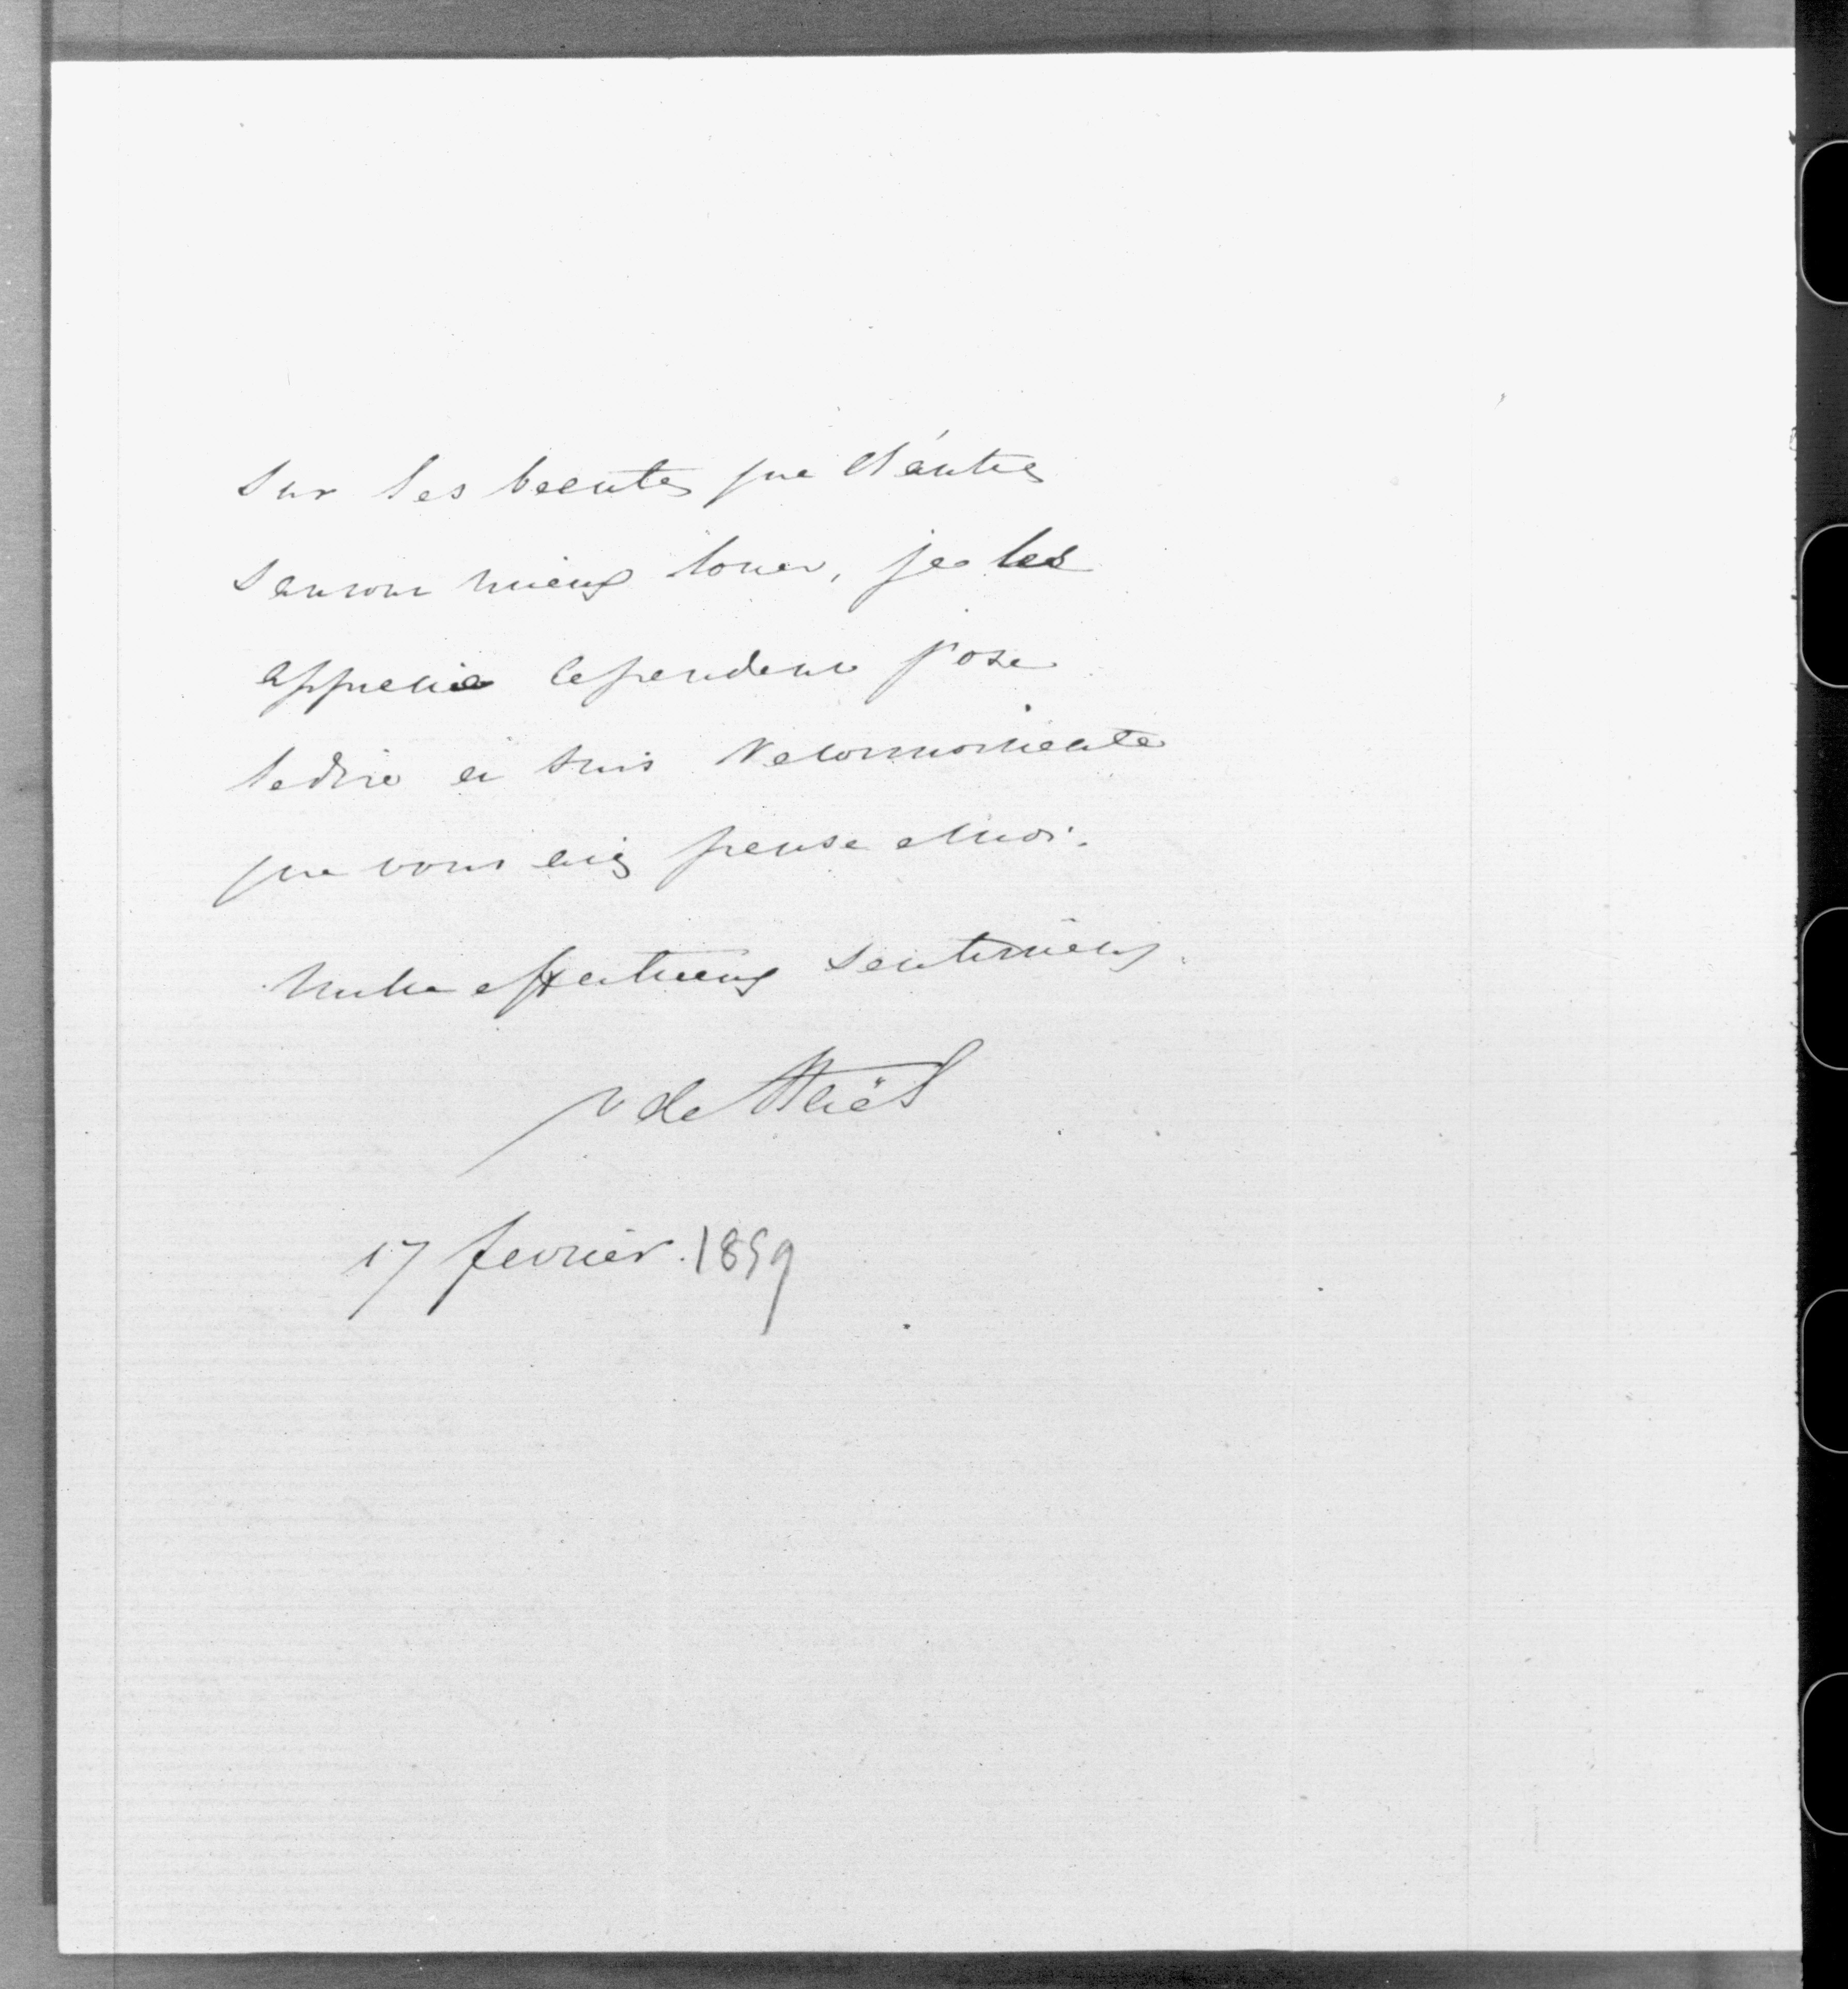 sur les beautés que d'autres
sauront mieux louer, je les
apprecie cependant j'ose
le dire et suis reconnoissante
que vous aiez pensé a moi.
Mille affectueux sentimens
V de Staël
17 fevrier. 1859